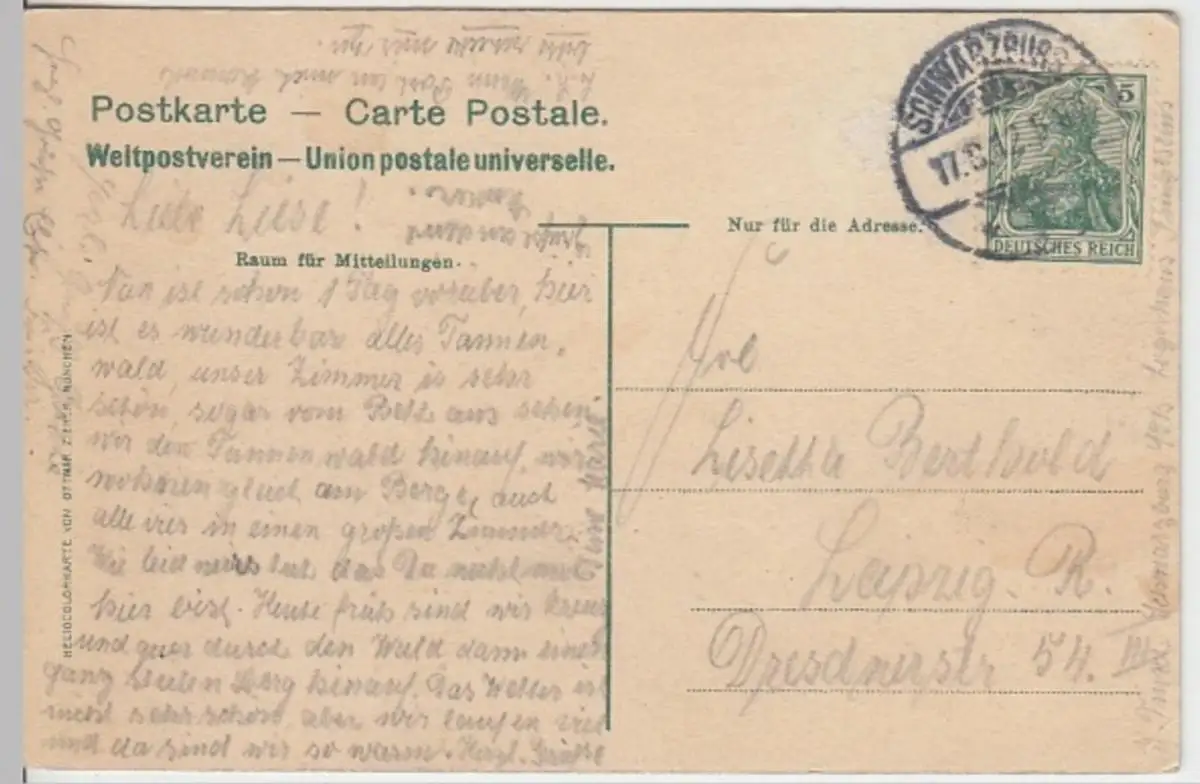 bitte
Postkarte — Carte Postale.
Weltpostverein — Union postale universelle.
Liebe Liese!
Nur für die Adresse.
Raum für Mitteilungen.
Nun ist schon 1 Tag vorüber, hier
ist es wunderbar alles Tannen,
wald, unser Zimmer is sehr
schön, sogar vom Bett aus sehen
wir den Tannenwald hinauf, wir
wohnen gleich am Berge, auch
alle vier in einen großen Zimmer.
Wie leid das Du nicht mit
hier bist. Heute früh sind wir kreuz
und quer durch den Wald dann einen
ganz steilen Berg hinauf. Das Wetter ist
meist sehr schön, aber wir laufen viel
und da sind wir so warm. Herzl. Grüße
HELIOCOLORKARTE VON OTTMAR ZIEHER, MÜNCHEN
SCHWARZBURG
17.8.12.5
5
DEUTSCHES REICH
Frl
Lisetha Berthold
Leipzig. R.
Dresdnerstr 54. III
Schwarzburg Logierhaus